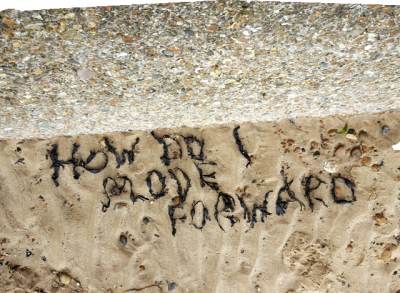 HOW DO I
MOVE
FORWARD